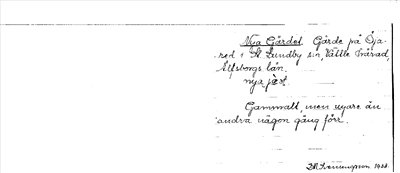 Nya Gärdet. Gärde på Öja-
red i St. Lundby sn, Vättle härad,
Älfsborgs län.
nya jæṭ
Gammalt, men nyare än
andra någon gång förr.
1933.